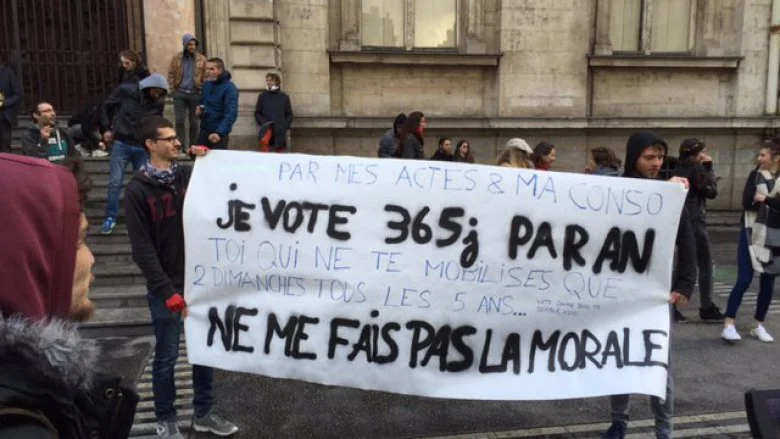 PAR MES ACTES & MA CONSO
JE VOTE 365j PAR AN
TOI QUI NE TE MOBILISES QUE
2 DIMANCHES TOUS LES 5 ANS...
NE ME FAIS PAS LA MORALE